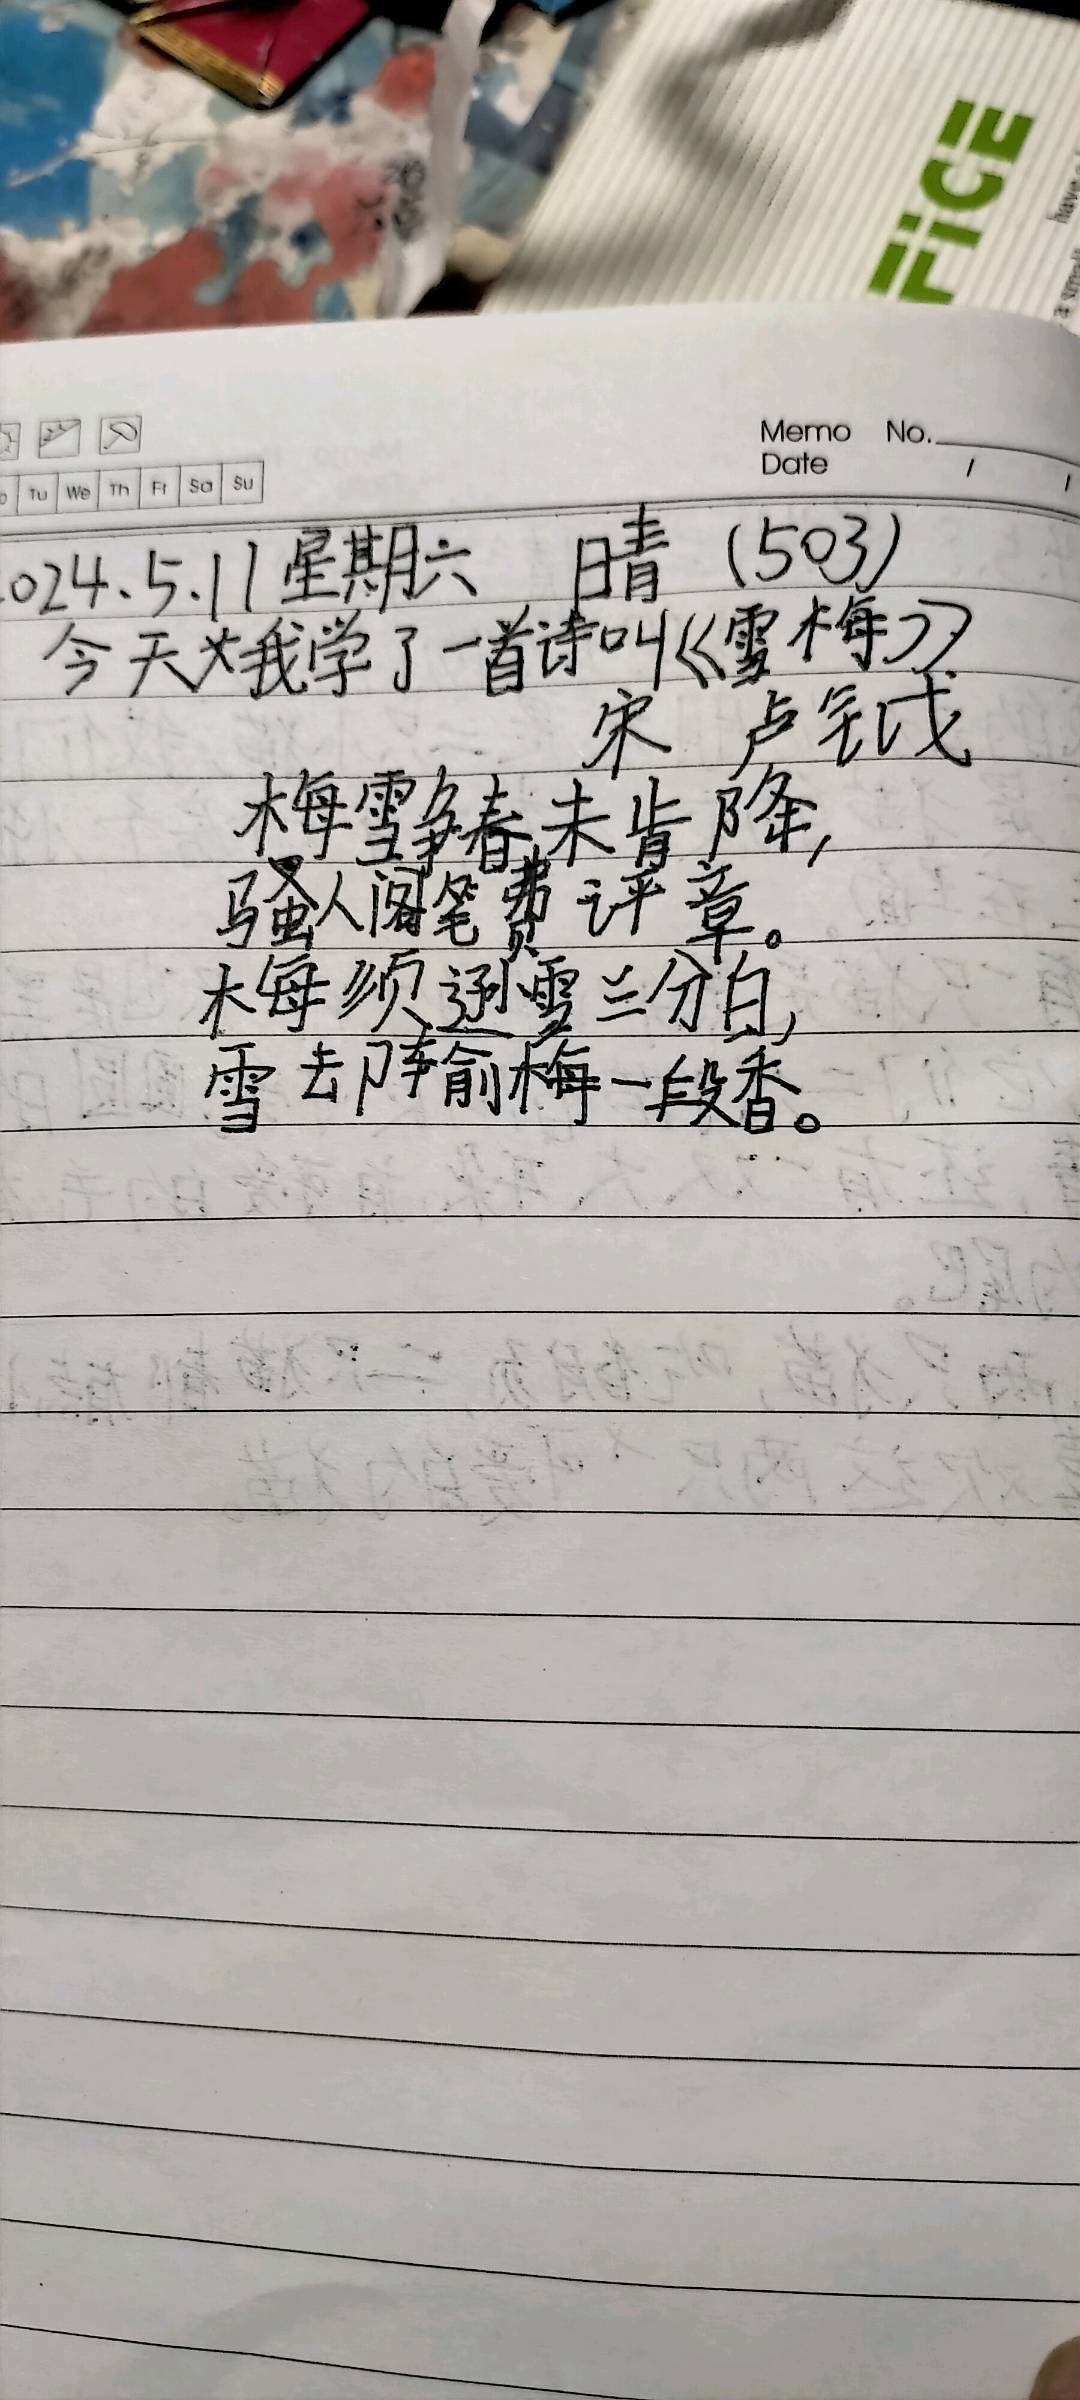 FiCE
have
a small
Memo No.
Date / /
Tu We Th Fr Sa Su
2024.5.11 星期六 晴 (503)
今天我学了一首诗叫《雪梅》
宋 卢钺
梅雪争春未肯降,
骚人阁笔费评章。
梅须逊雪三分白,
雪去阵输梅一段香。